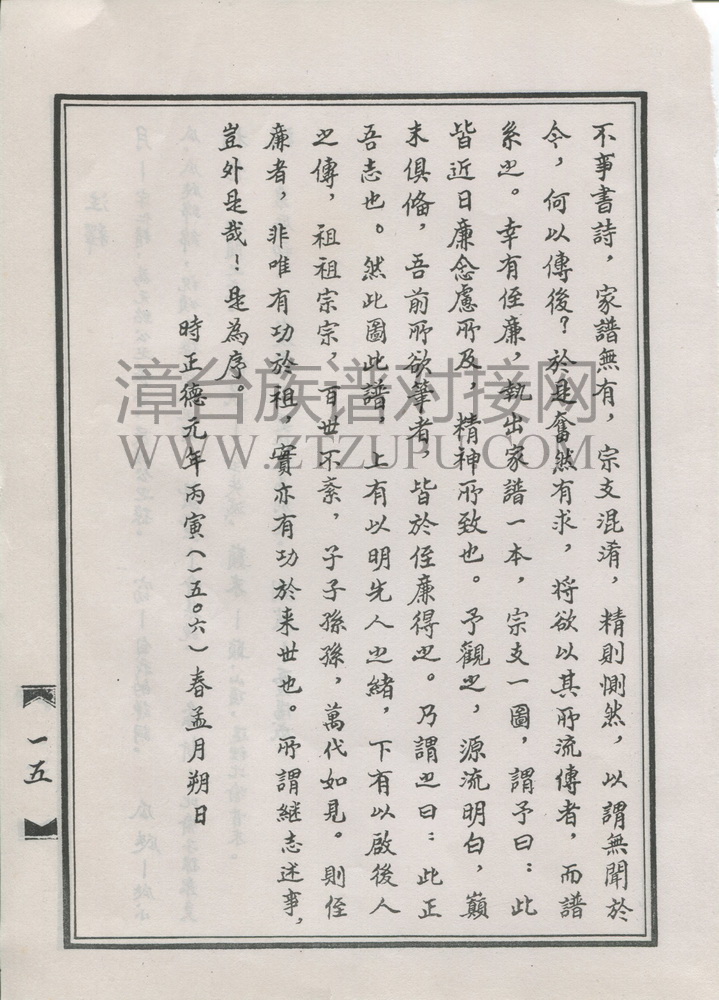 不事書詩，家譜無有，宗支混淆，精則惻然，以謂無聞於
今，何以傳後？於是奮然有求，将欲以其所流傳者，而譜
系之。幸有侄廉，執出家譜一本，宗支一圖，謂予曰：此
皆近日廉念慮所及，精神所致也。予觀之，源流明白，巔
末俱俻，吾前所欲筆者，皆於侄廉得之。乃謂之曰：此正
吾志也。然此圖此譜，上有以明先人之緒，下有以啟後人
之傳，祖祖宗宗，百世不紊，子子孫孫，萬代如見。則侄
廉者，非唯有功於祖，實亦有功於来世也。所謂継志述事，
豈外是哉！是為序。
時正德元年丙寅（一五〇六）春孟月朔日
一五
漳台族谱对接网
WWW.ZTZUPU.COM